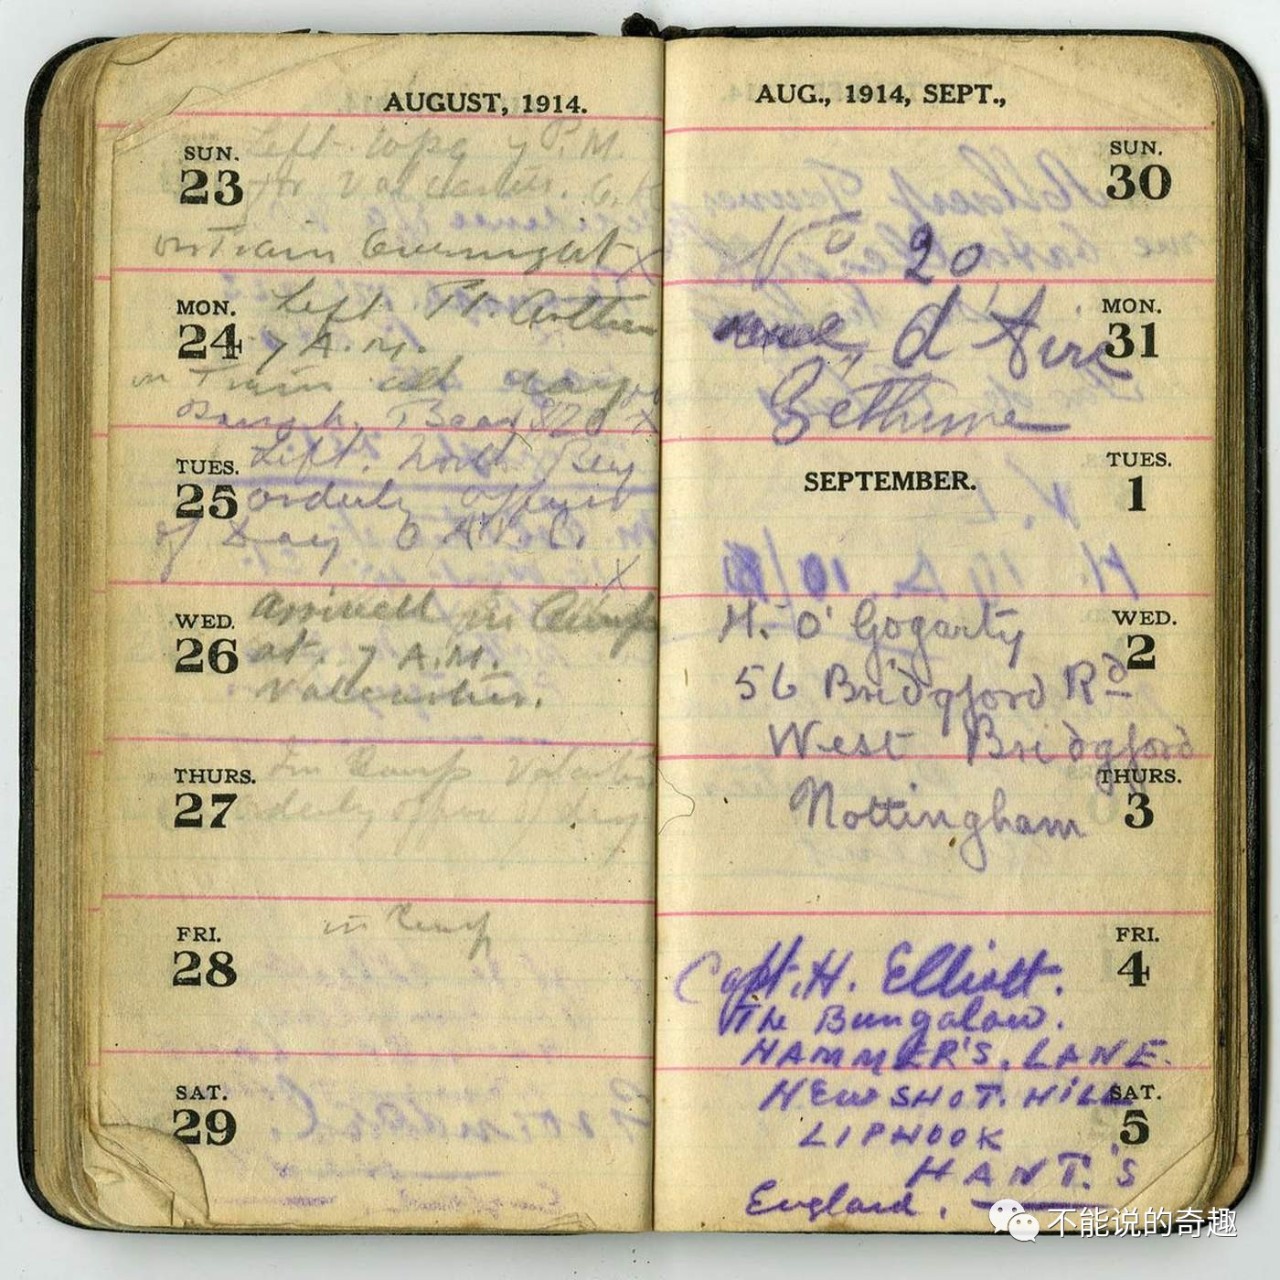 AUGUST, 1914.
SUN.
23
Left Wpg 7 P.M.
for Valcartier.
on Train Overnight X
MON.
24
Left Pt. Arthur
7 A.M.
on Train all day
X
TUES.
25
Left North Bay
orderly officer
of Day
X
WED.
26
arrived in Camp
at 7 A.M.
Valcartier.
THURS.
27
In Camp Valcartier
orderly officer of day
FRI.
28
in Camp
SAT.
29
AUG., 1914, SEPT.,
SUN.
30
No 20
MON.
31
rue d'Aire
Bethune
SEPTEMBER.
TUES.
1
WED.
2
H. O'Gogarty
56 Bridgford Rd
West Bridgford
THURS.
3
Nottingham
FRI.
4
Capt. H. Elliott.
The Bungalow.
HAMMER'S. LANE.
SAT.
5
NEW SHOT. HILL
LIPHOOK
HANT.'S
England.
不能说的奇趣